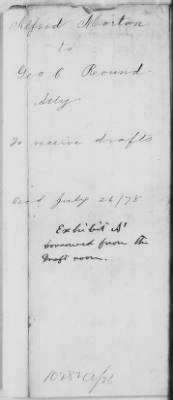 Alfred Morton
to
Geo C Round
Atty
To receive drafts
Recd July 26/78
Exhibit A'
borrowed from the
Draft room.